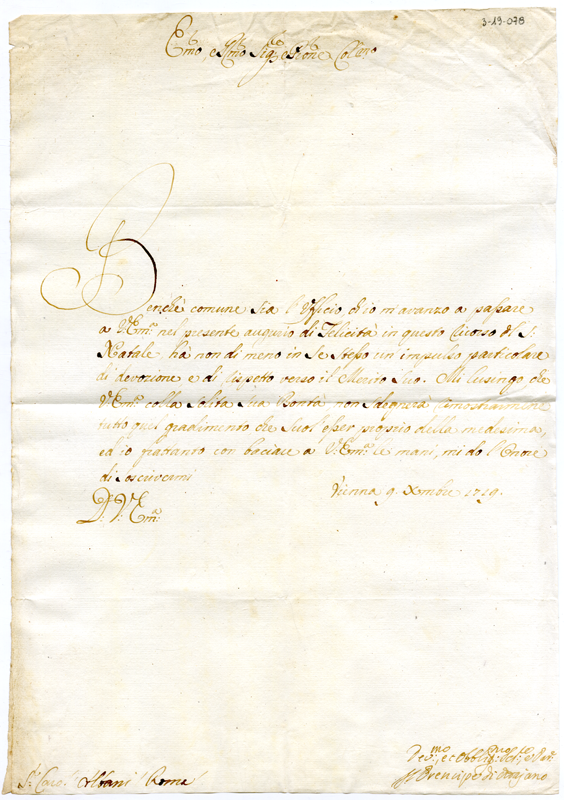 3-19-078
Emo, e Rmo Sigr e Prone Colmo
Benchè comune sia l'Vfficio ch'io m'avanzo a passare
a V. Emza nel presente augurio di Felicità in questo Corso del S.
Natale, hà non di meno in se stesso un impulso particolare
di devozione e di rispetto verso il Merito Suo. Mi lusingo che
V. Emza colla solita sua Bontà non sdegnerà rimostrarmene
tutto quel gradimento che suol esser proprio della medesima,
ed io frattanto con baciare a V. Emza le mani, mi do l'Onore
di soscrivermi
Vienna 9 Xmbre 1719.
D. V. Emza
Devmo, et Obbligmo
Il Prencipe di
Sr. Card. Albani Roma